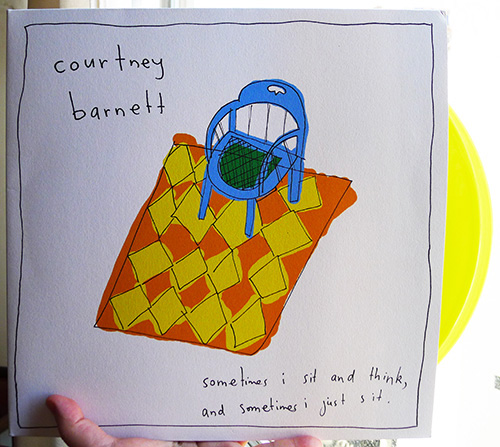 courtney
barnett
sometimes i sit and think,
and sometimes i just sit.